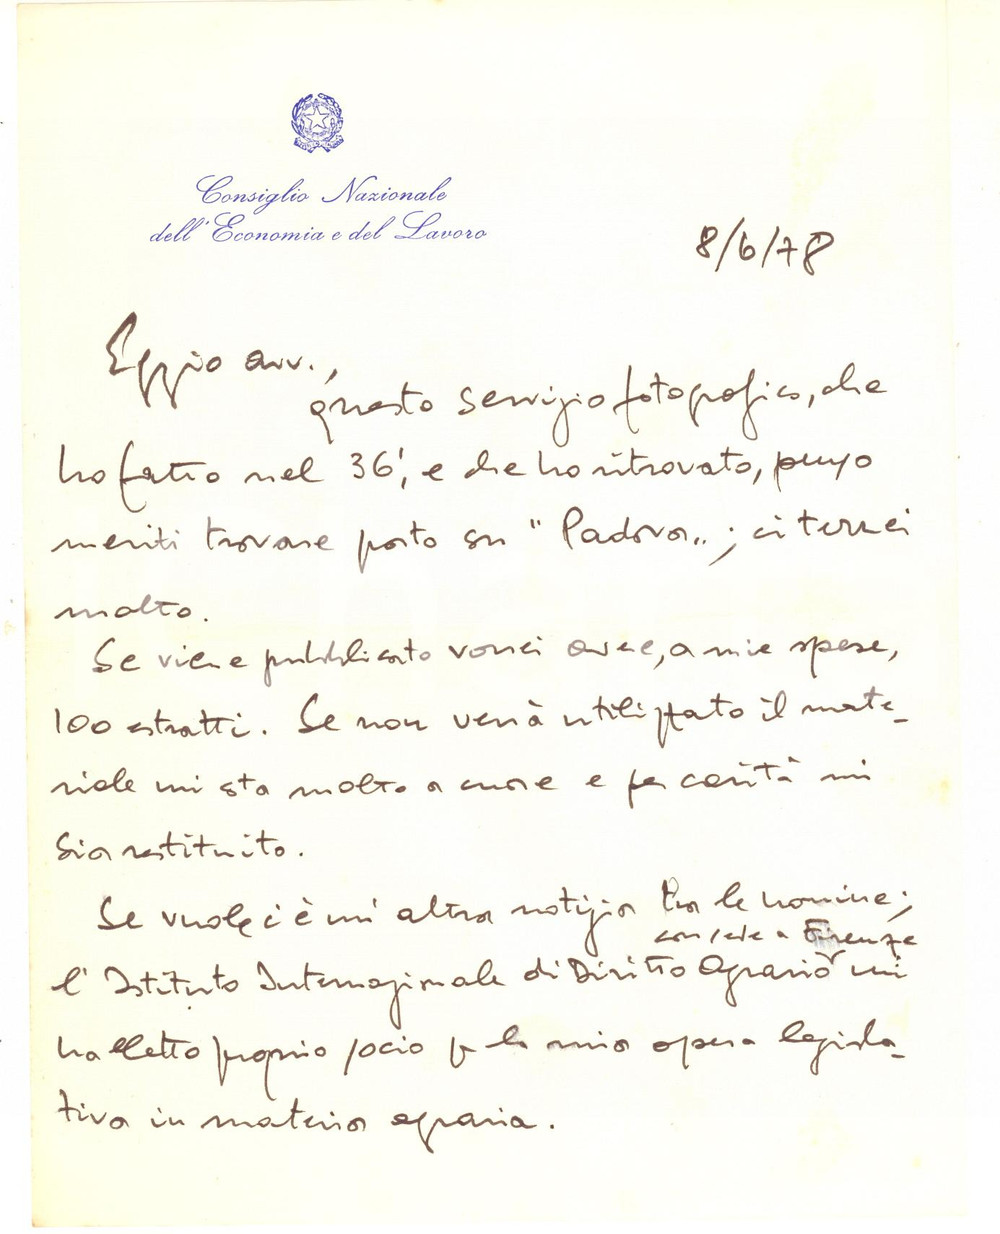 Consiglio Nazionale
dell'Economia e del Lavoro
8/6/78
Eg̲gio avv.,
questo servizio fotografico, che
ho fatto nel 36', e che ho ritrovato, penso
meriti trovare posto su "Padova"; ci terrei
molto.
Se viene pubblicato vorrei avere, a mie spese,
100 estratti. Se non verrà utilizzato il mate-
riale mi sta molto a cuore e per carità mi
sia restituito.
Se vuole c'è un'altra notizia tra le nomine;
con sede a Firenze
l'Istituto Internazionale di Diritto Agrario mi
ha eletto proprio socio per la mia opera legisla-
tiva in materia agraria.